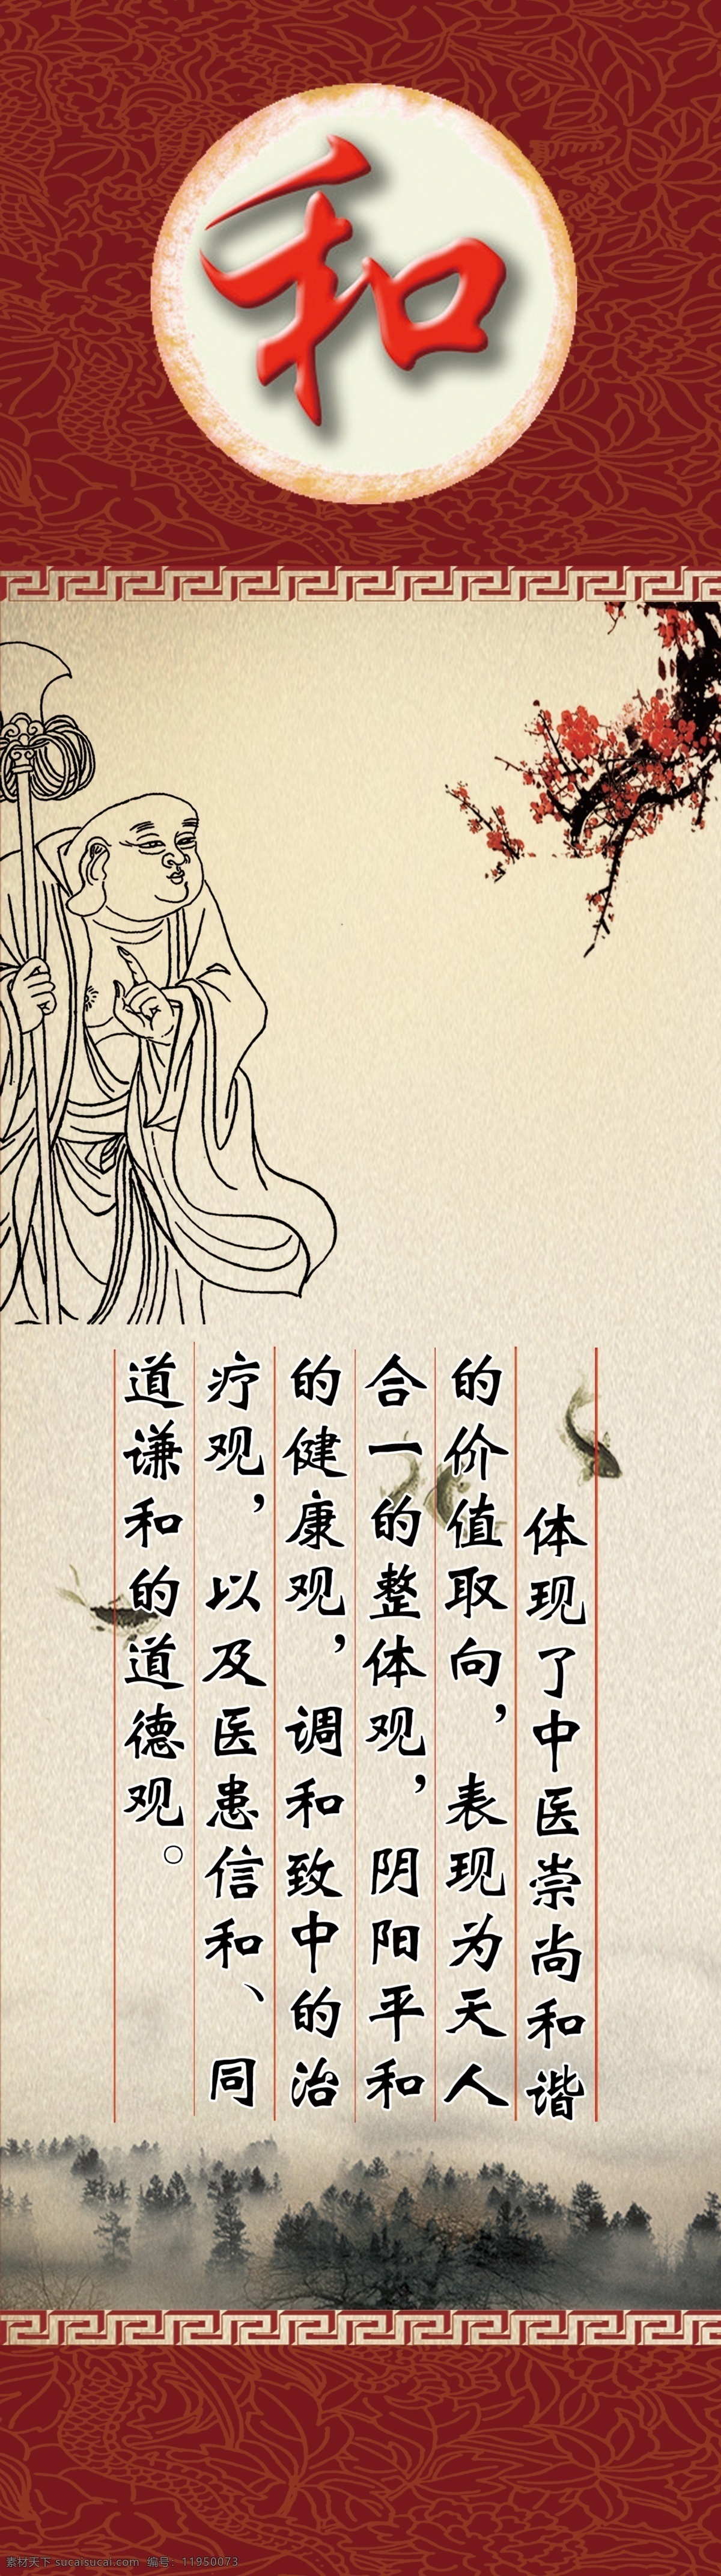 和
体现了中医崇尚和谐
的价值取向，表现为天人
合一的整体观，阴阳平和
的健康观，调和致中的治
疗观，以及医患信和、同
道谦和的道德观。
素材天下 sucaisucai.com 编号：11950073